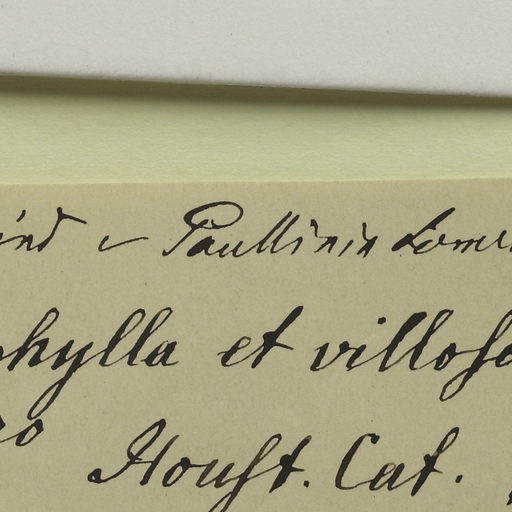 ind v Paullinia tomen
phylla et villosa
ro Houst. Cat.